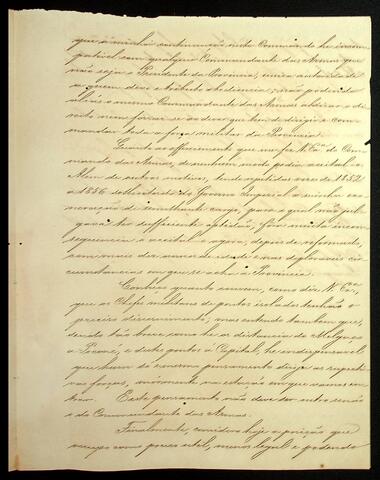 que a minha continuação neste Commando he incom-
pativel com qualquer Commandante das Armas que
não seja o Presidente da Provincia, unica autoridade
a quem devo e tributo obediencia; não podendo
aliás o mesmo Commandante das Armas abdicar o di-
reito nem forrar-se ao dever que tem de dirigir e com-
mandar toda a força militar da Provincia.
Quanto ao offerecimento que me fez V. Exa. do Com-
mando das Armas, de nenhum modo podia aceital-o.
Alem de outros motivos, tendo repetidas vezes de 1852
a 1856 sollicitado do Governo Imperial a minha exo-
neração de semelhante cargo, para o qual não jul-
gava ter sufficiente aptidão, fôra muita incon-
sequencia o aceital-o agora, depois de reformado,
com mais dez annos de idade e nas deploraveis cir-
cumstancias em que se acha a Provincia.
Conheço quanto convem, como diz V. Exa.
que os Chefes militares de pontos isolados tenhão o
preciso discernimento; mas entendo tambem que,
sendo tão breve como he as distancias de Melgaço
a Poconé, e destes pontos á Capital, he indispensavel
que hum só e mesmo pensamento dirija as respecti-
vas forças, mormente na estação em que vamos en-
trar. Este pensamento não deve ser outro senão
o do Commandante das Armas.
Finalmente, considero hoje a posição que
occupo como pouco util, menos legal e podendo